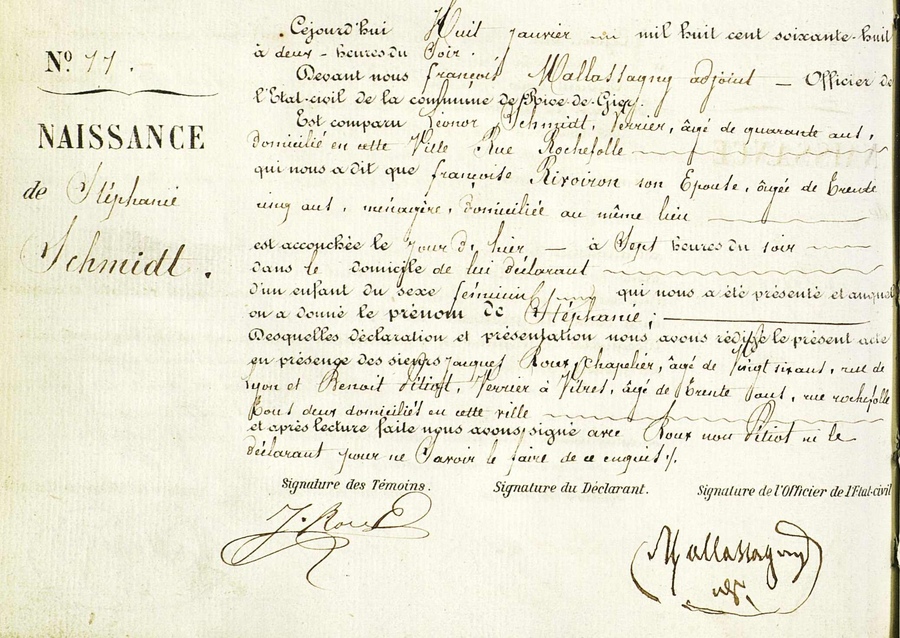 Nº 11.
NAISSANCE
de Stéphanie
Schmidt.
Cejourd'hui Huit janvier mil huit cent soixante-huit
à deux heures du Soir.
Devant nous françois Mallassagny adjoint — Officier de
l'Etat-civil de la commune de Rive-de-Gier.
Est comparu Léonor Schmidt, Verrier, âgé de quarante ans,
domicilié en cette Ville Rue Rochefolle
qui nous a dit que françoise Rivoiron son Epouse, âgée de Trente
cinq ans, ménagère, domiciliée au même lieu
est accouchée le jour d'hier — à Sept heures du soir
dans le domicile de lui déclarant
d'un enfant du sexe féminin qui nous a été présenté et auquel
on a donné le prénom de Stéphanie;
Desquelles déclaration et présentation nous avons rédigé le présent acte
en présence des sieurs Jacques Roux, Chapelier, âgé de Vingt six ans, rue de
Lyon et Benoit Pétiot, Verrier à Vitres, âgé de Trente ans, rue rochefolle
Tous deux domiciliés en cette ville
et après lecture faite nous avons signé avec Roux non Pétiot ni le
déclarant pour ne Savoir le faire de ce enquis.
Signature des Témoins. Signature du Déclarant. Signature de l'Officier de l'Etat-civil
J. Roux
Mallassagny
adj.